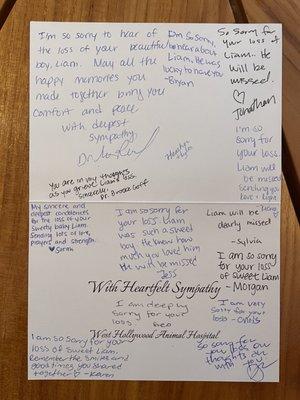 I'm so sorry to hear of
the loss of your beautiful
boy, Liam. May all the
happy memories you
made together bring you
comfort and peace
With deepest
sympathy,
I'm so sorry
to hear about
Liam. He was
lucky to have you
-Bryan
So sorry for
Your loss of
Liam.. He
will be
missed.
♡
Jonathan
I'm so
sorry for
your loss.
Liam will
be missed
sending you
love
You are in my thoughts
as you grieve Liam's loss.
Sincerely,
My sincere and
deepest condolences
for the loss of your
sweet baby Liam.
Sending lots of love,
prayers and strength.
♥ Sarah
I am so sorry for
your loss. Liam
was such a sweet
boy. He knew how
much you loved him
He will be missed
-Jess
Liam will be
dearly missed
-Sylvia
I am so sorry
for your loss
of sweet Liam
-Morgan
With Heartfelt Sympathy
I am deeply
sorry for your
loss.
Geo
I am very
sorry for your
loss -Chris
West Hollywood Animal Hospital
I am so sorry for your
loss of sweet Liam.
Remember the smiles and
good times you shared
together ♡ -Karen
So sorry for
your loss. Our
thoughts are
with you